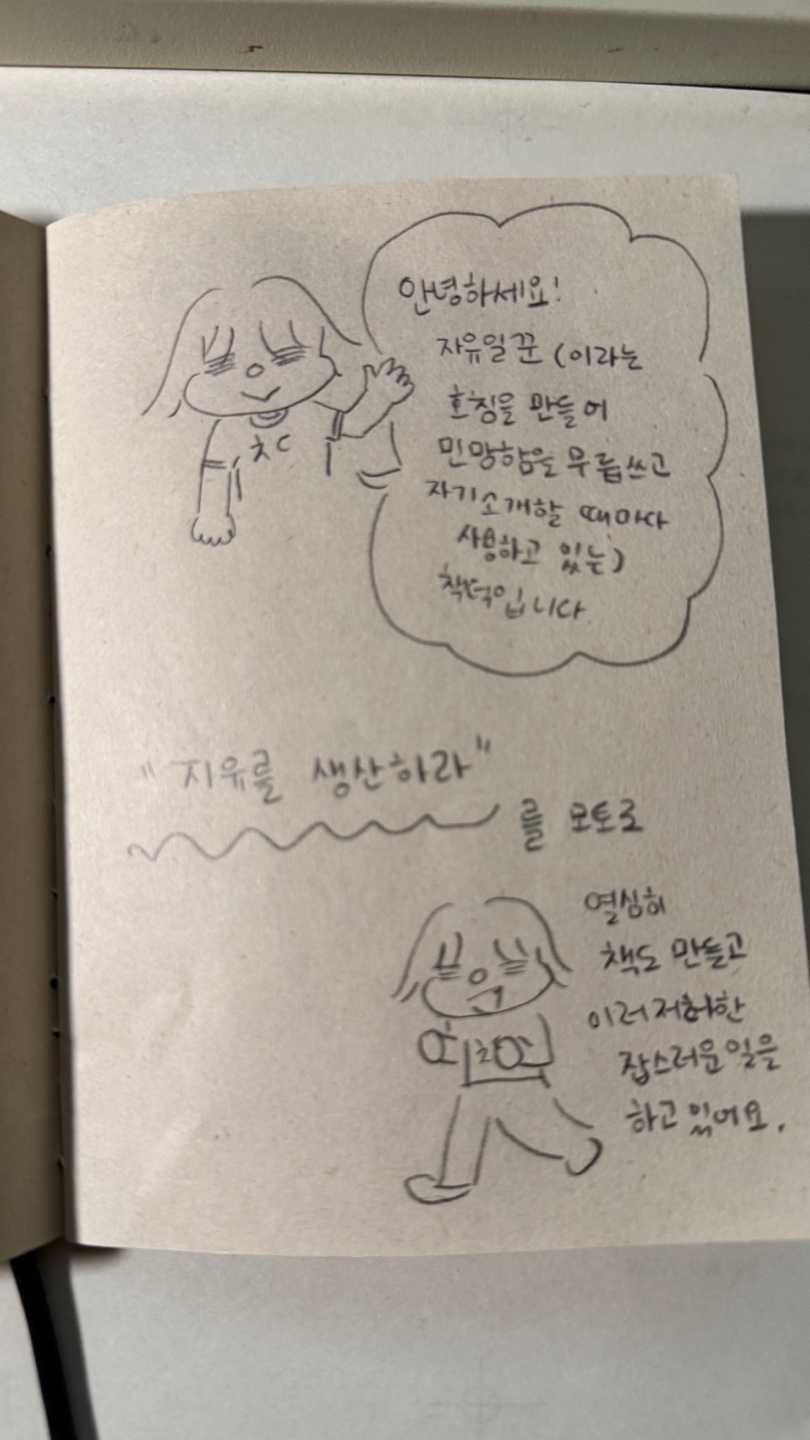 안녕하세요!
자유일꾼 (이라는
호칭을 만들어
민망함을 무릅쓰고
자기소개할 때마다
사용하고 있는)
책덕입니다
ㅊㄷ
"자유를 생산하라"
를 모토로
열심히
책도 만들고
이러저러한
잡스러운 일을
하고 있어요.